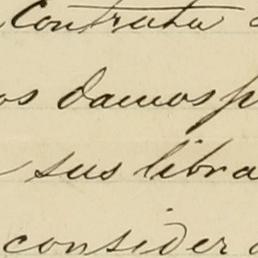 contrata
os damos p
sus libra
consider